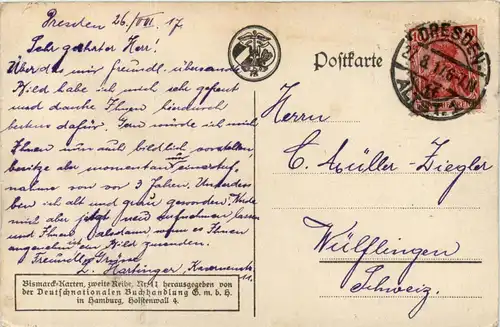 Dresden 26./VII. 17
Sehr geehrter Herr!
Über das mir freundl. übersandte
Bild habe ich mich sehr gefreut
und danke Ihnen hierdurch
bestens dafür. Gern würde ich mich
Ihnen nun auch bildlich vorstellen,
besitze aber momentan nur eine
nahme von vor 3 Jahren.
ben ich alt und grau geworden. Werde
mich aber jetzt neu aufnehmen lassen
und Ihnen alsdann, wenn es Ihnen
angenehm ist, ein Bild zusenden.
Freundl. Grüsse
L. Hartinger,
Bismarck-Karten, zweite Reihe, Nr. 11 herausgegeben von
der Deutschnationalen Buchhandlung G. m. b. H.
in Hamburg, Holstenwall 4.
Postkarte
DRESDEN
ALTST.
Herrn
C. Müller-Ziegler
Wülflingen
Schweiz.